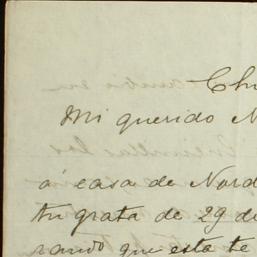 Chi
Mi querido N
á casa de Nord
tu grata de 29 de
rando que esta te